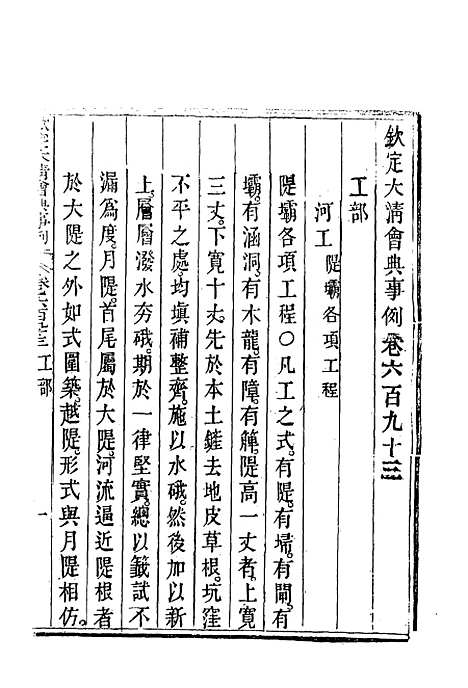 欽定大清會典事例卷六百九十三
工部
河工 隄壩各項工程
隄壩各項工程〇凡工之式。有隄。有埽。有閘。有
壩。有涵洞。有木龍。有障。有䉡。隄高一丈者。上寬
三丈。下寬十丈。先於本土鏟去地皮草根。坑窪
不平之處。均塡補整齊。施以水硪。然後加以新
上。層層潑水夯硪。期於一律堅實。總以籤試不
漏爲度。月隄。首尾屬於大隄。河流逼近隄根者
於大隄之外如式圍築。越隄。形式與月隄相仿。
欽定大清會典事例 卷六百九十三 工部 一